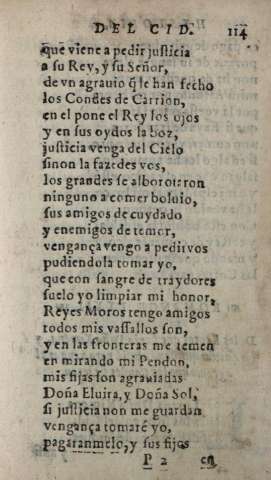 DEL CID. 114
que viene a pedir justicia
a su Rey, y su Señor,
de vn agrauio q̃ le han fecho
los Condes de Carrion,
en el pone el Rey los ojos
y en sus oydos la boz,
justicia venga del Cielo
sinon la fazedes vos,
los grandes se alborotaron
ninguno a comer boluio,
sus amigos de cuydado
y enemigos de temor,
vengança vengo a pediruos
pudiendola tomar yo,
que con sangre de traydores
suelo yo limpiar mi honor,
Reyes Moros tengo amigos
todos mis vassallos son,
y en las fronteras me temen
en mirando mi Pendon,
mis fijas son agrauiadas
Doña Eluira, y Doña Sol,
si justicia non me guardan
vengança tomarè yo,
pagaranmelo, y sus fijos
P 2 en